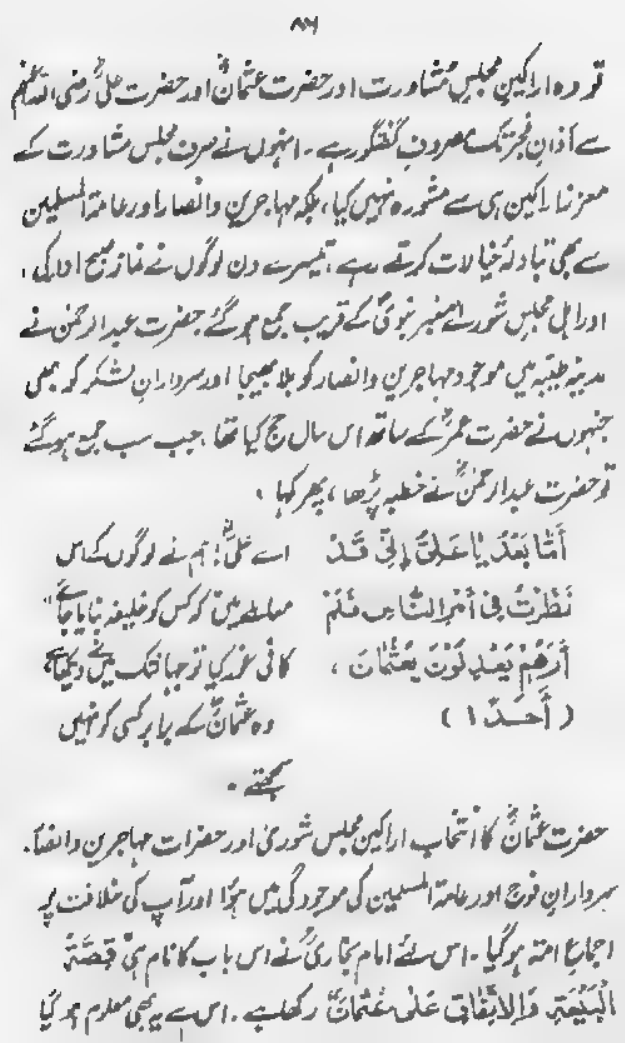 ۸۰۶
تو وہ اراکینِ مجلسِ مشاورت اور حضرت عثمانؓ اور حضرت علیؓ رضی اللہ عنہم
سے اذانِ فجر تک مصروفِ گفتگو رہے۔ انہوں نے صرف مجلس مشاورت کے
معزز اراکین ہی سے مشورہ نہیں کیا، بلکہ مہاجرین وانصار اور عامۃ المسلمین
سے بھی تبادلۂ خیالات کرتے رہے، تیسرے دن لوگوں نے نماز صبح ادا کی،
اور اہل مجلسِ شورےٰ منبر نبویؐ کے قریب جمع ہو گئے حضرت عبدالرحمٰن نے
مدینہ طیبہ میں موجود مہاجرین وانصار کو بلا بھیجا اور سردارانِ لشکر کو بھی
جنہوں نے حضرت عمرؓ کے ساتھ اس سال حج کیا تھا، جب سب جمع ہوگئے
تو حضرت عبدالرحمٰنؓ نے خطبہ پڑھا، پھر کہا،
أَمَّا بَعْدُ یَا عَلِیُّ إِنِّی قَدْ اے علیؓ! ہم نے لوگوں کے اس
نَظَرْتُ فِی أَمْرِ النَّاسِ فَلَمْ معاملے میں کہ کس کو خلیفہ بنایا جائے"
أَرَهُمْ یَعْدِلُوْنَ بِعُثْمَانَ، کافی غور کیا تو جہانتک میں نے دیکھا ہے،
(أَحَدًا) وہ عثمانؓ کے برابر کسی کو نہیں
سمجھتے۔
حضرت عثمانؓ کا انتخاب اراکین مجلس شوریٰ اور حضرات مہاجرین وانصار۔
سردارانِ فوج اور عامۃ المسلمین کی موجودگی میں ہؤا اور آپ کی خلافت پر
اجماعِ امتہ ہوگیا۔ اس لئے امام بخاریؒ نے اس باب کا نام ہی قِصَّةُ
الْبَیْعَةِ وَالِاتِّفَاقِ عَلٰی عُثْمَانَؓ رکھا ہے۔ اس سے یہ بھی معلوم ہو گیا